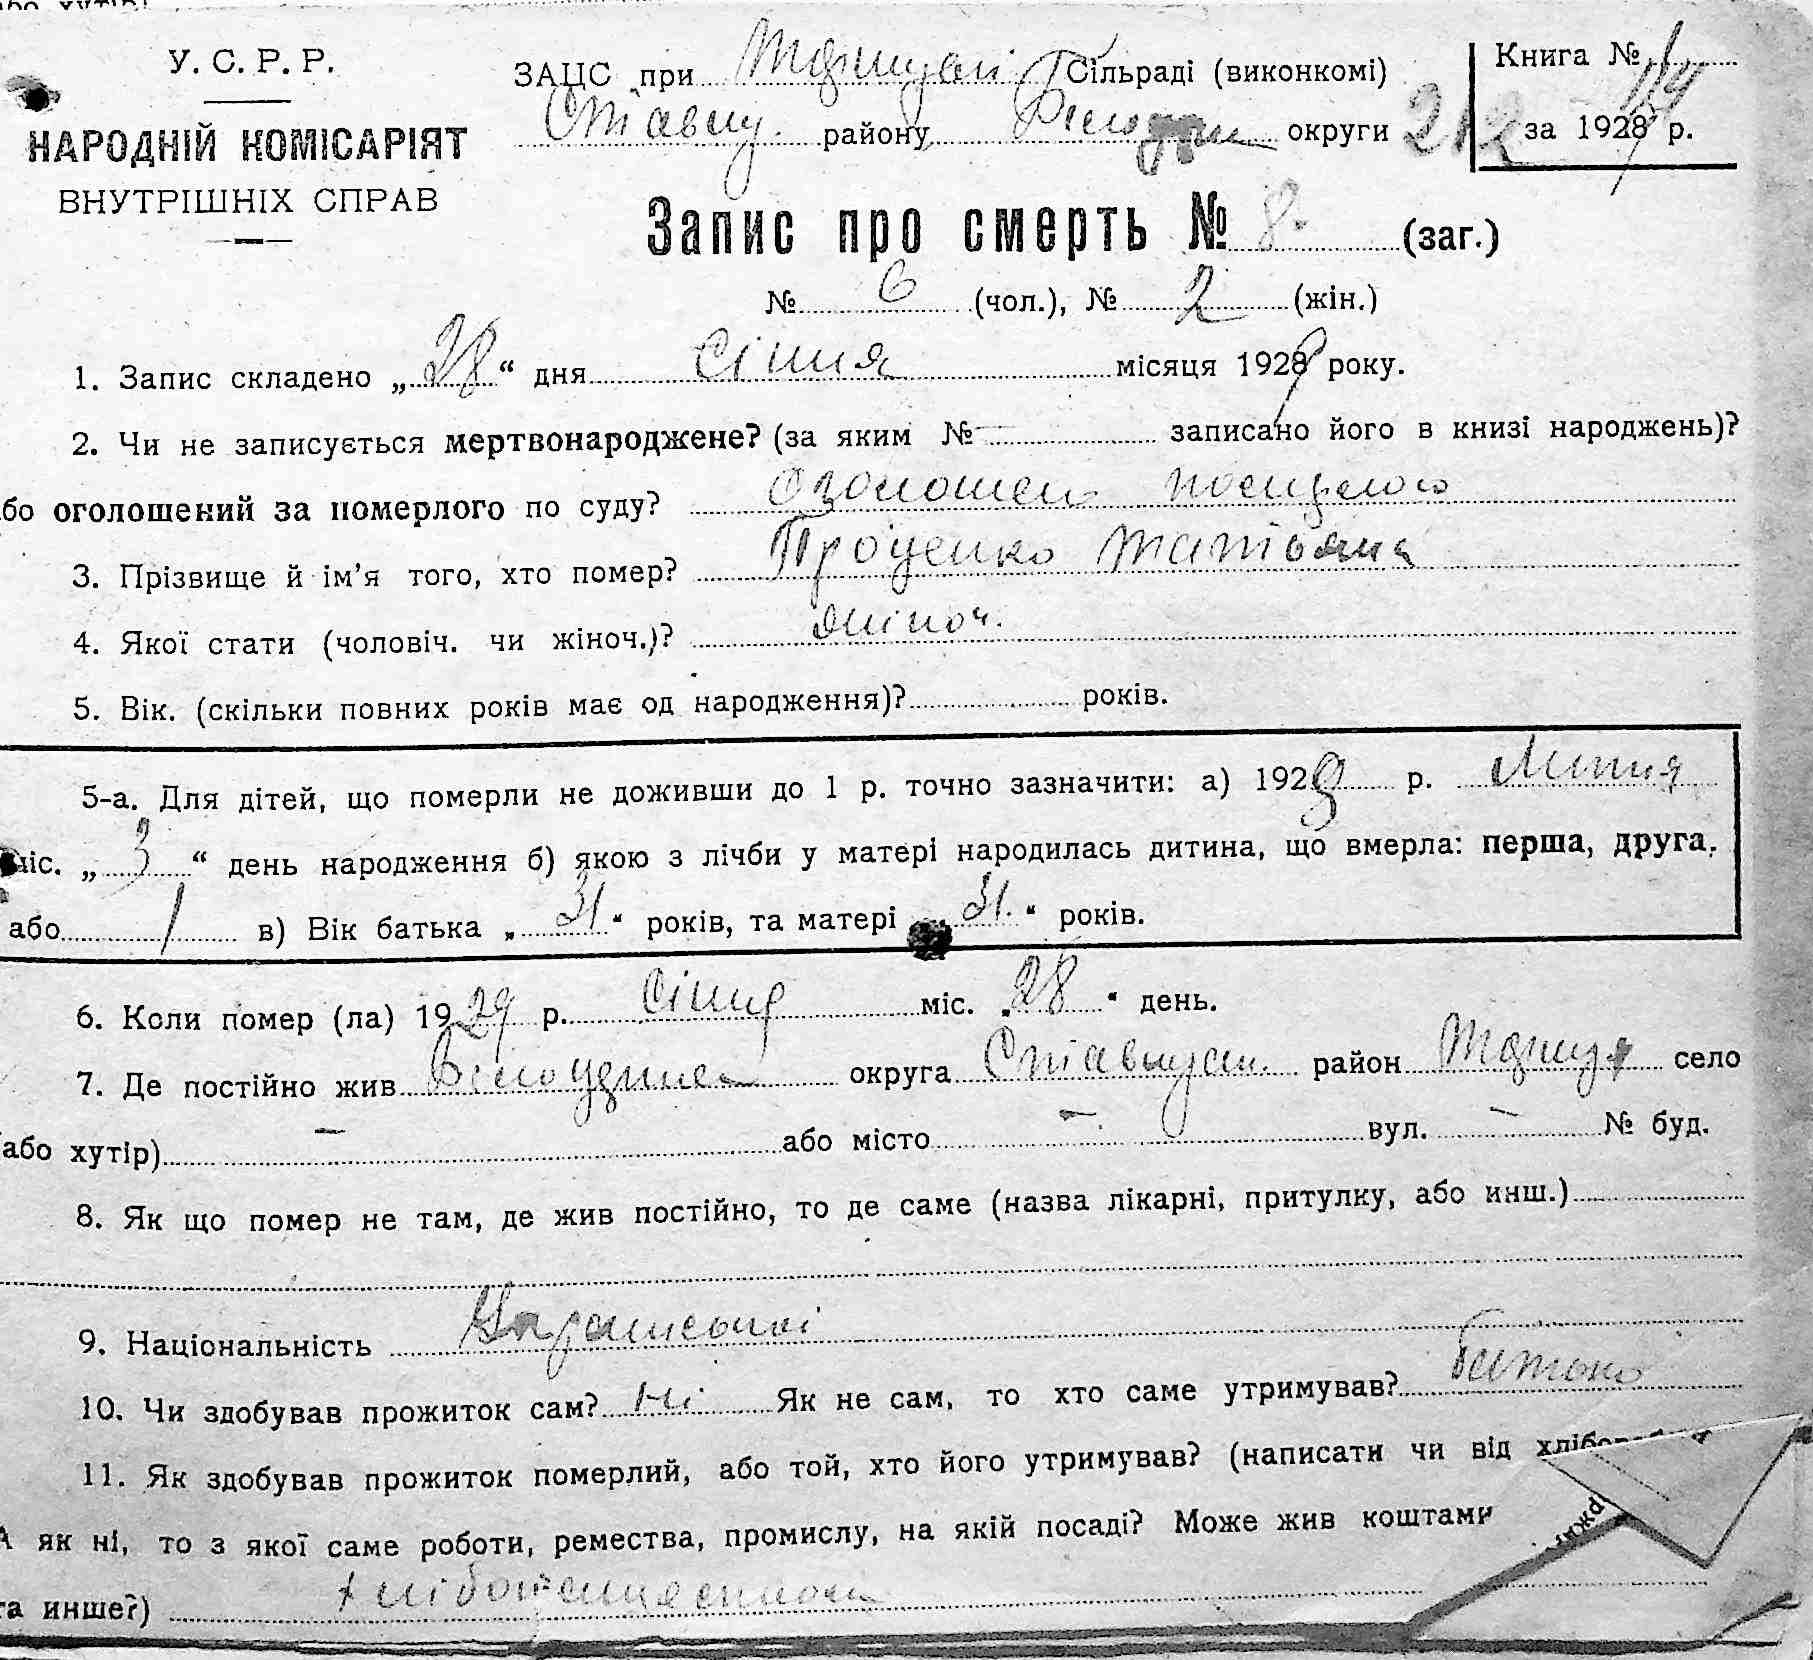 У. С. Р. Р.
НАРОДНІЙ КОМІСАРІЯТ
ВНУТРІШНІХ СПРАВ
ЗАЦС при Сільраді (виконкомі)
Ставищ. району округи 212
Книга № 1
за 1928 р.
Запис про смерть № 8 (заг.)
№ 6 (чол.), № 2 (жін.)
1. Запис складено „28“ дня Січня місяця 1929 року.
2. Чи не записується мертвонароджене? (за яким № — записано його в книзі народжень)?
або оголошений за померлого по суду?
3. Прізвище й ім’я того, хто помер? Проценко Татьяна
4. Якої стати (чоловіч. чи жіноч.)? жіноч.
5. Вік. (скільки повних років має од народження)? років.
5-а. Для дітей, що померли не доживши до 1 р. точно зазначити: а) 1928 р. Липня
міс. „3“ день народження б) якою з лічби у матері народилась дитина, що вмерла: перша, друга,
або 1 в) Вік батька „31“ років, та матері „31.“ років.
6. Коли помер (ла) 1929 р. Січня міс. „28“ день.
7. Де постійно жив округа район село
(або хутір) — або місто — вул. — № буд.
8. Як що помер не там, де жив постійно, то де саме (назва лікарні, притулку, або инш.)
9. Національність
10. Чи здобував прожиток сам? Ні Як не сам, то хто саме утримував? Батько
11. Як здобував прожиток померлий, або той, хто його утримував? (написати чи від
А як ні, то з якої саме роботи, ремества, промислу, на якій посаді? Може жив коштами
та инше?)